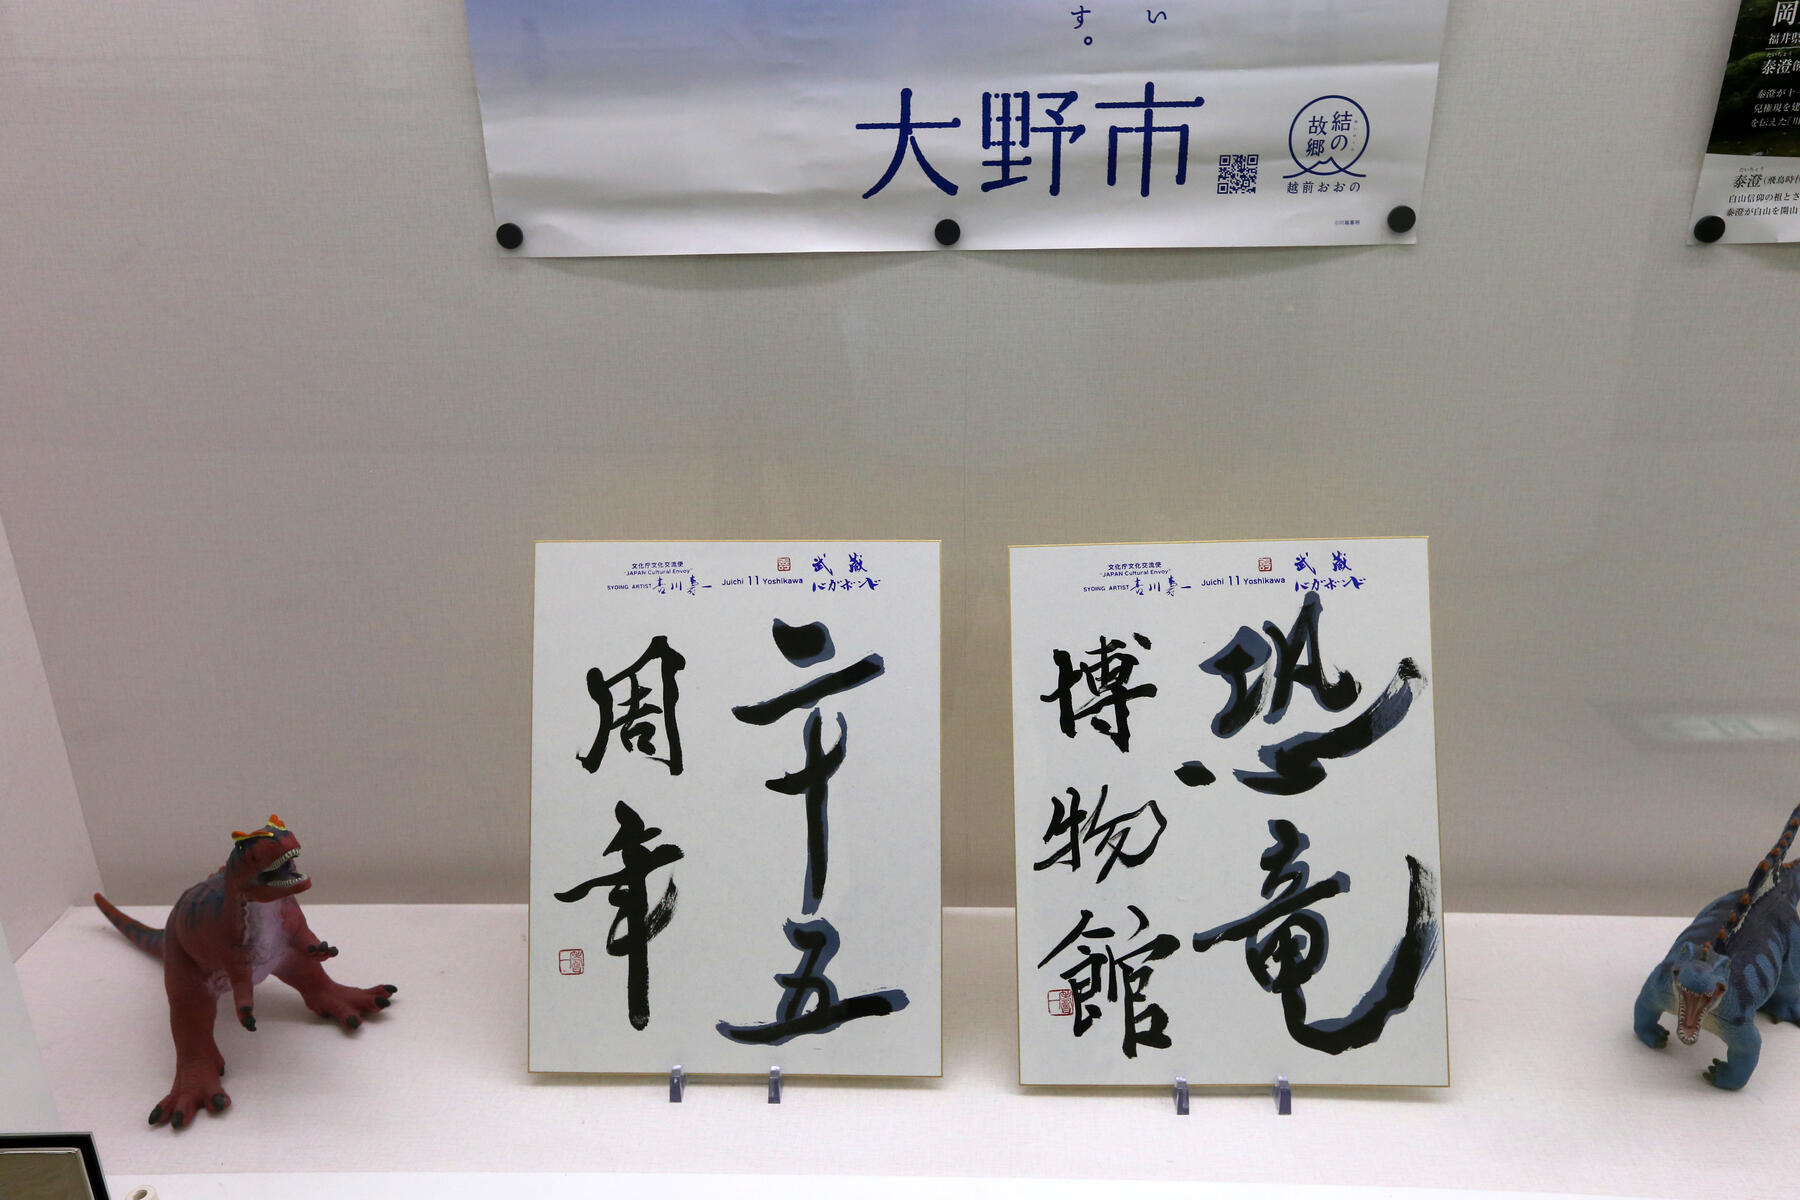 い
す。
大野市
結の
故郷
越前おおの
岡
福井県
たいちょう
泰澄
泰澄が十
を伝えた「川
たいちょう
泰澄(飛鳥時代
白山信仰の祖とさ
泰澄が白山を開山
文化庁文化交流使
"JAPAN Cultural Envoy"
SYDING ARTIST 吉川壽一 Juichi 11 Yoshikawa
武蔵
バガボンド
二十五
周年
文化庁文化交流使
"JAPAN Cultural Envoy"
SYDING ARTIST 吉川壽一 Juichi 11 Yoshikawa
武蔵
バガボンド
恐竜
博物館